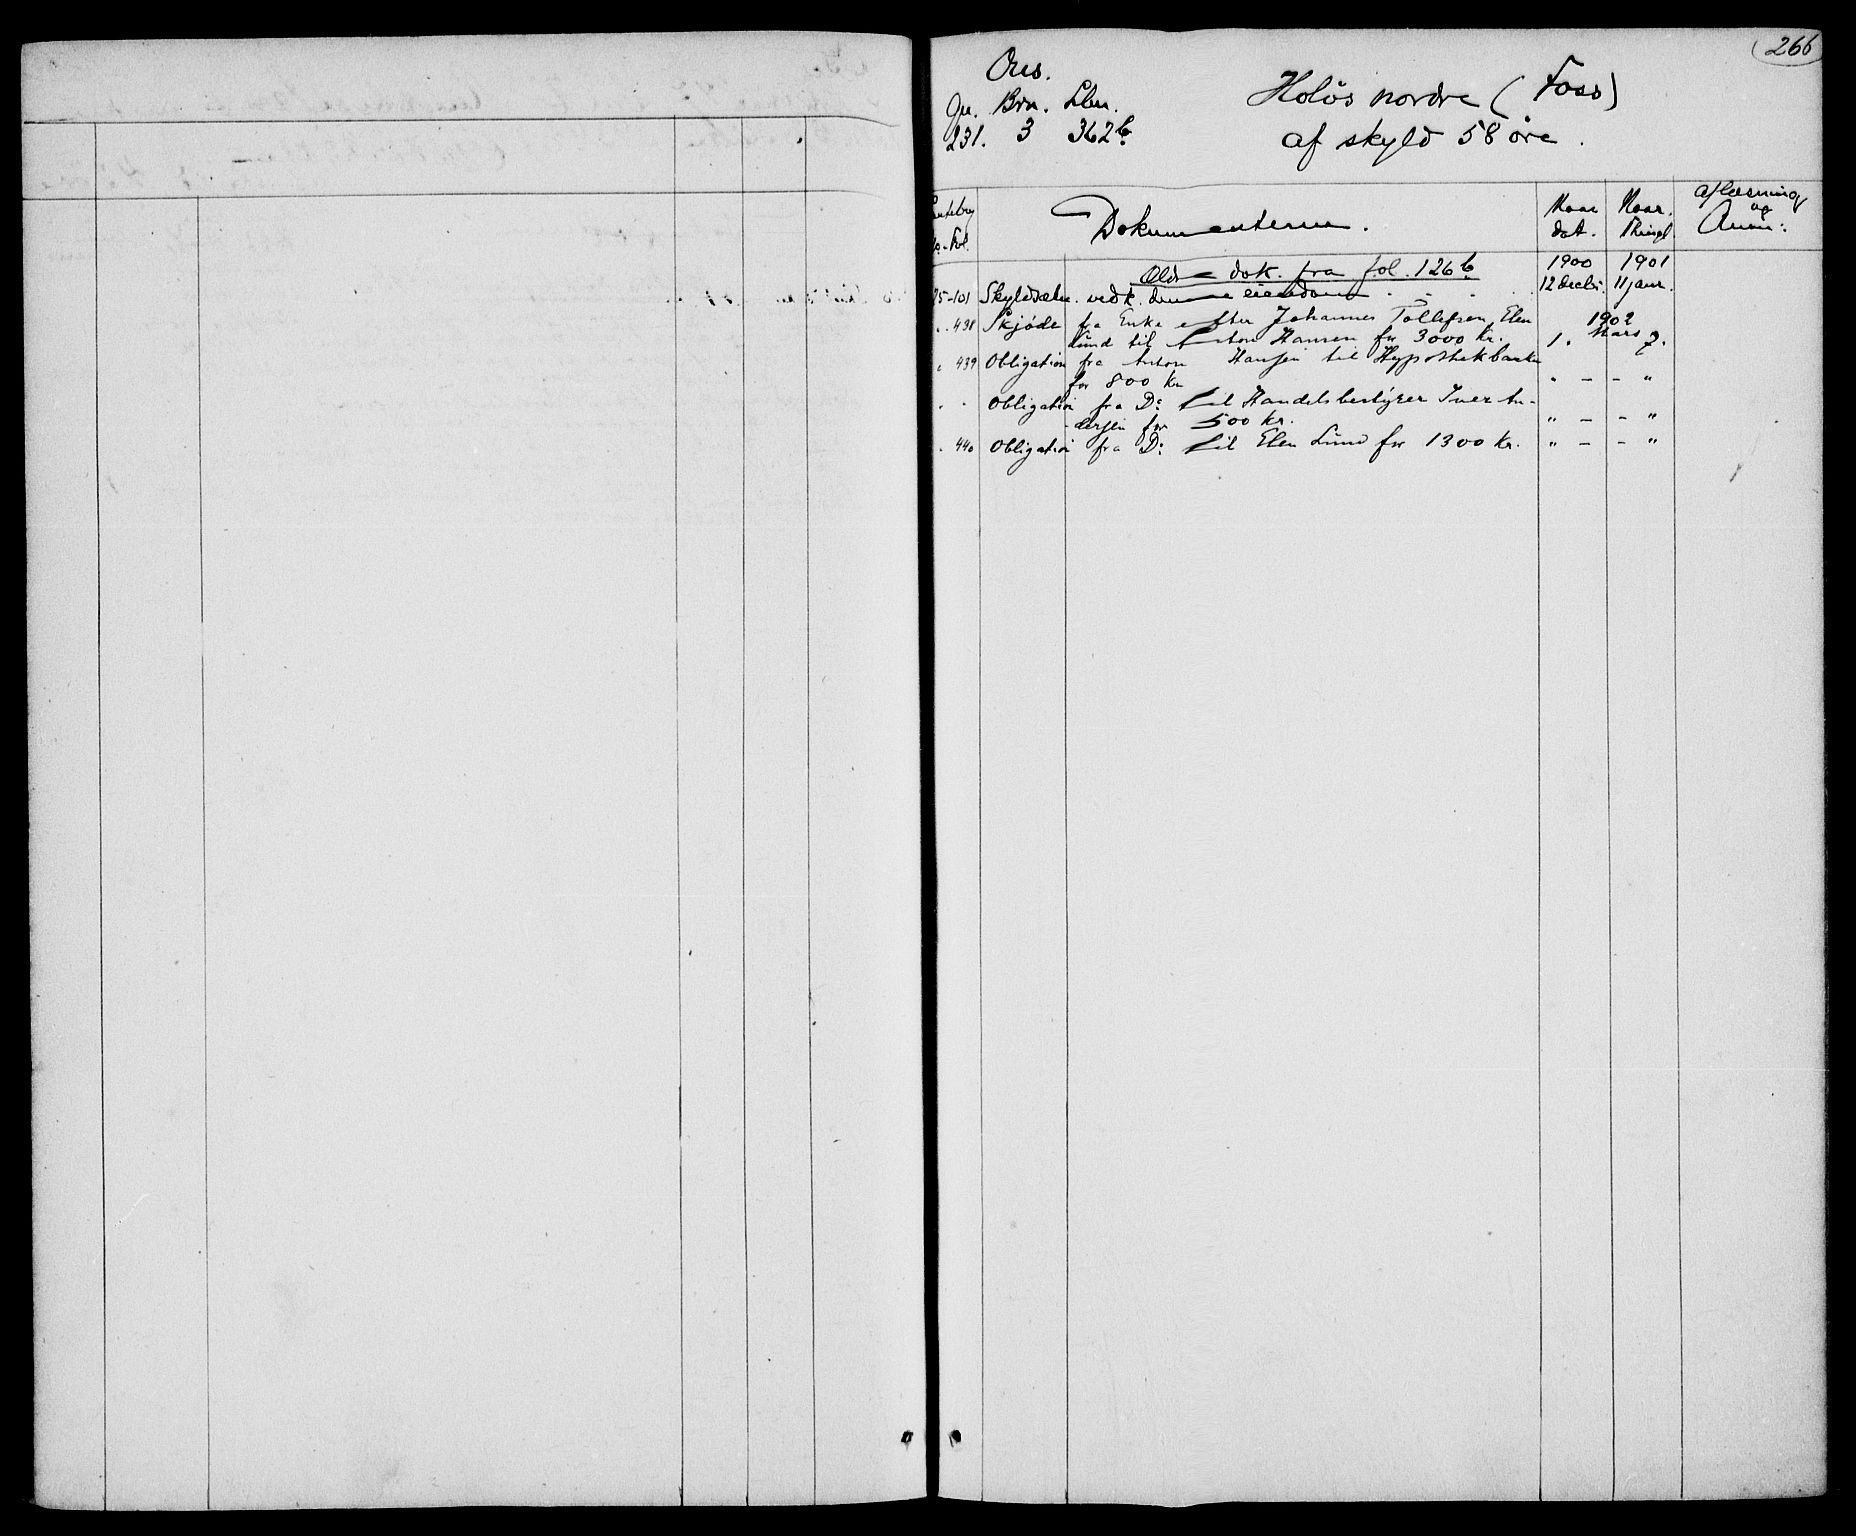 266
Øies.
Gn. Brn. Lbn.
231. 3 362b.
Holøs nordre (Foss)
af skyld 58 øre.
Dokumenterne.
Naar dat.
Naar Thingl.
Aflæsning og Anm:
Ældre dok. fra fol. 126b 1900 1901
25-101 Skylddeln. vedk. denne eiendom . . . . 12 decbr. 11 janr.
" 438 Skjøde fra Enke efter Johannes Tollefsen, Elen 1902
Lund til Anton Hansen for 3000 kr. 1. Mars 7.
" 439 Obligation fra Anton Hansen til Hypothekbanken
for 800 kr " - - "
" " Obligation fra Do: til Handelsbestyrer Iver An-
dersen for 500 kr. " - - "
" 440 Obligation fra Do: til Elen Lund for 1300 kr. " - - "